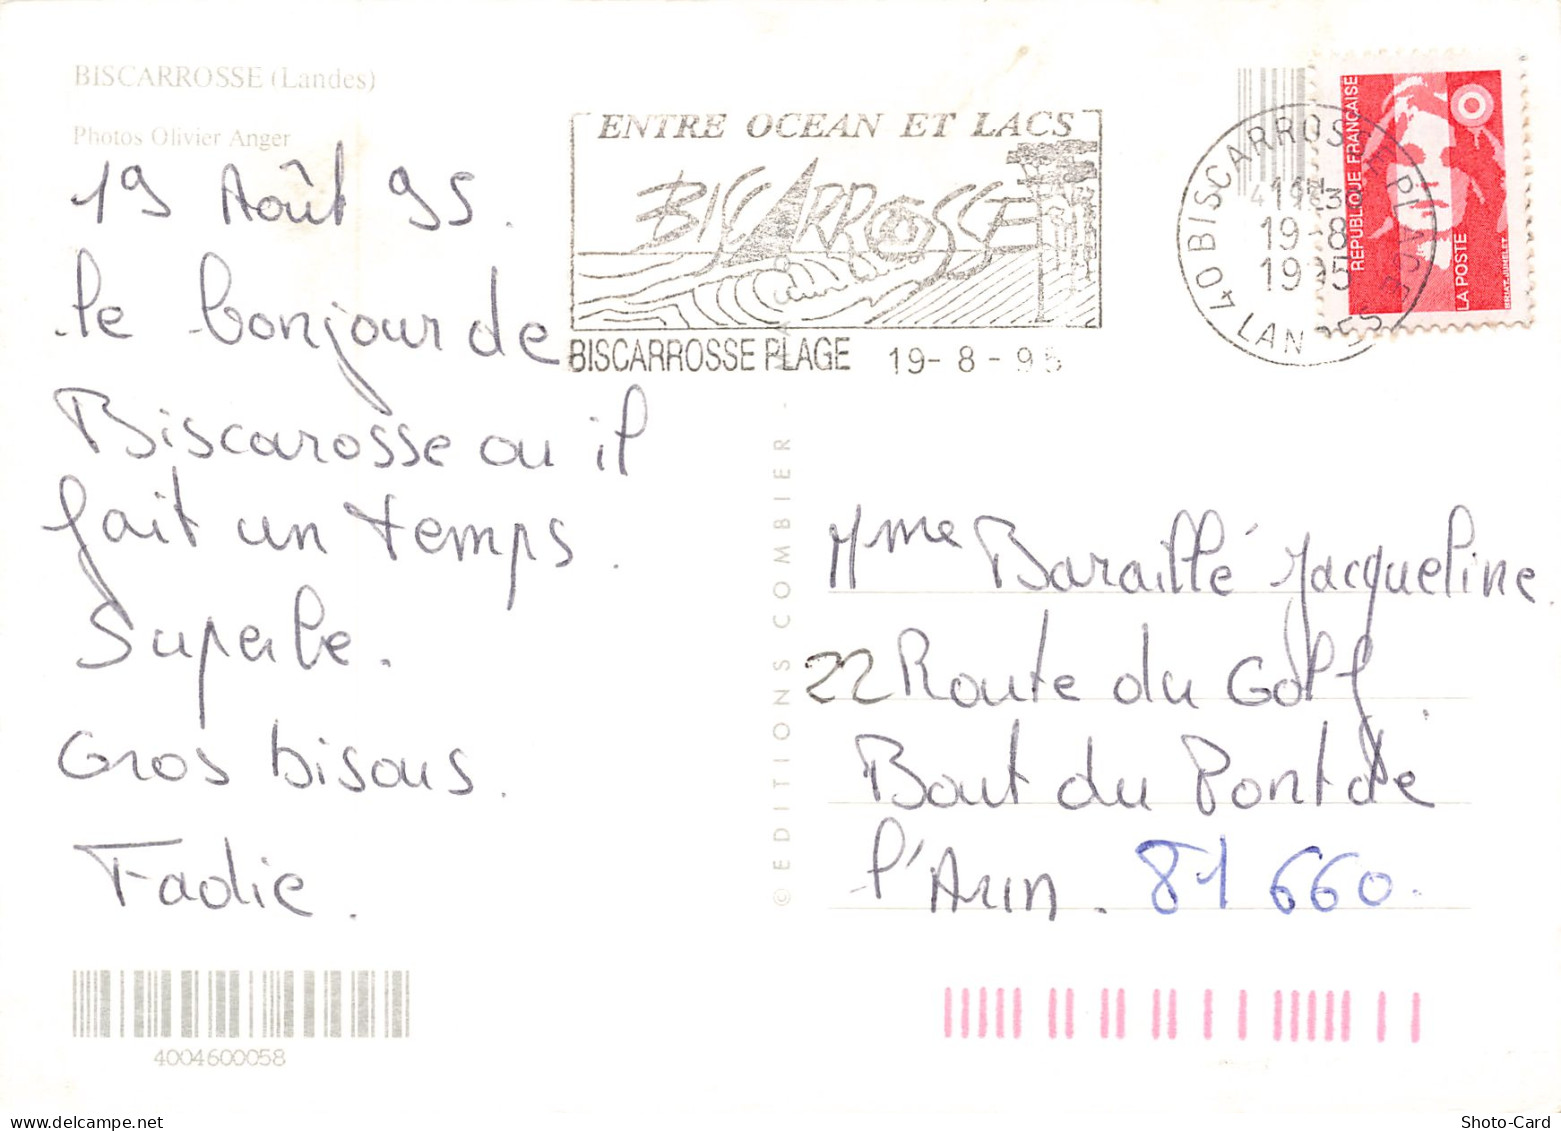 BISCARROSSE (Landes)
Photos Olivier Anger
19 Août 95.
le bonjour de
Biscarosse ou il
fait un temps.
Superbe.
Gros bisous.
Fadie.
4004600058
ENTRE OCEAN ET LACS
BISCARROSSE
BISCARROSSE PLAGE 19-8-95
40 BISCARROSSE PLAGE
19-8
1995
LANDES
REPUBLIQUE FRANÇAISE
LA POSTE
© EDITIONS COMBIER
Mme Baraillé Jacqueline
22 Route du Golf
Bout du Pont de
l'Arn. 81 660.
Shoto-Card